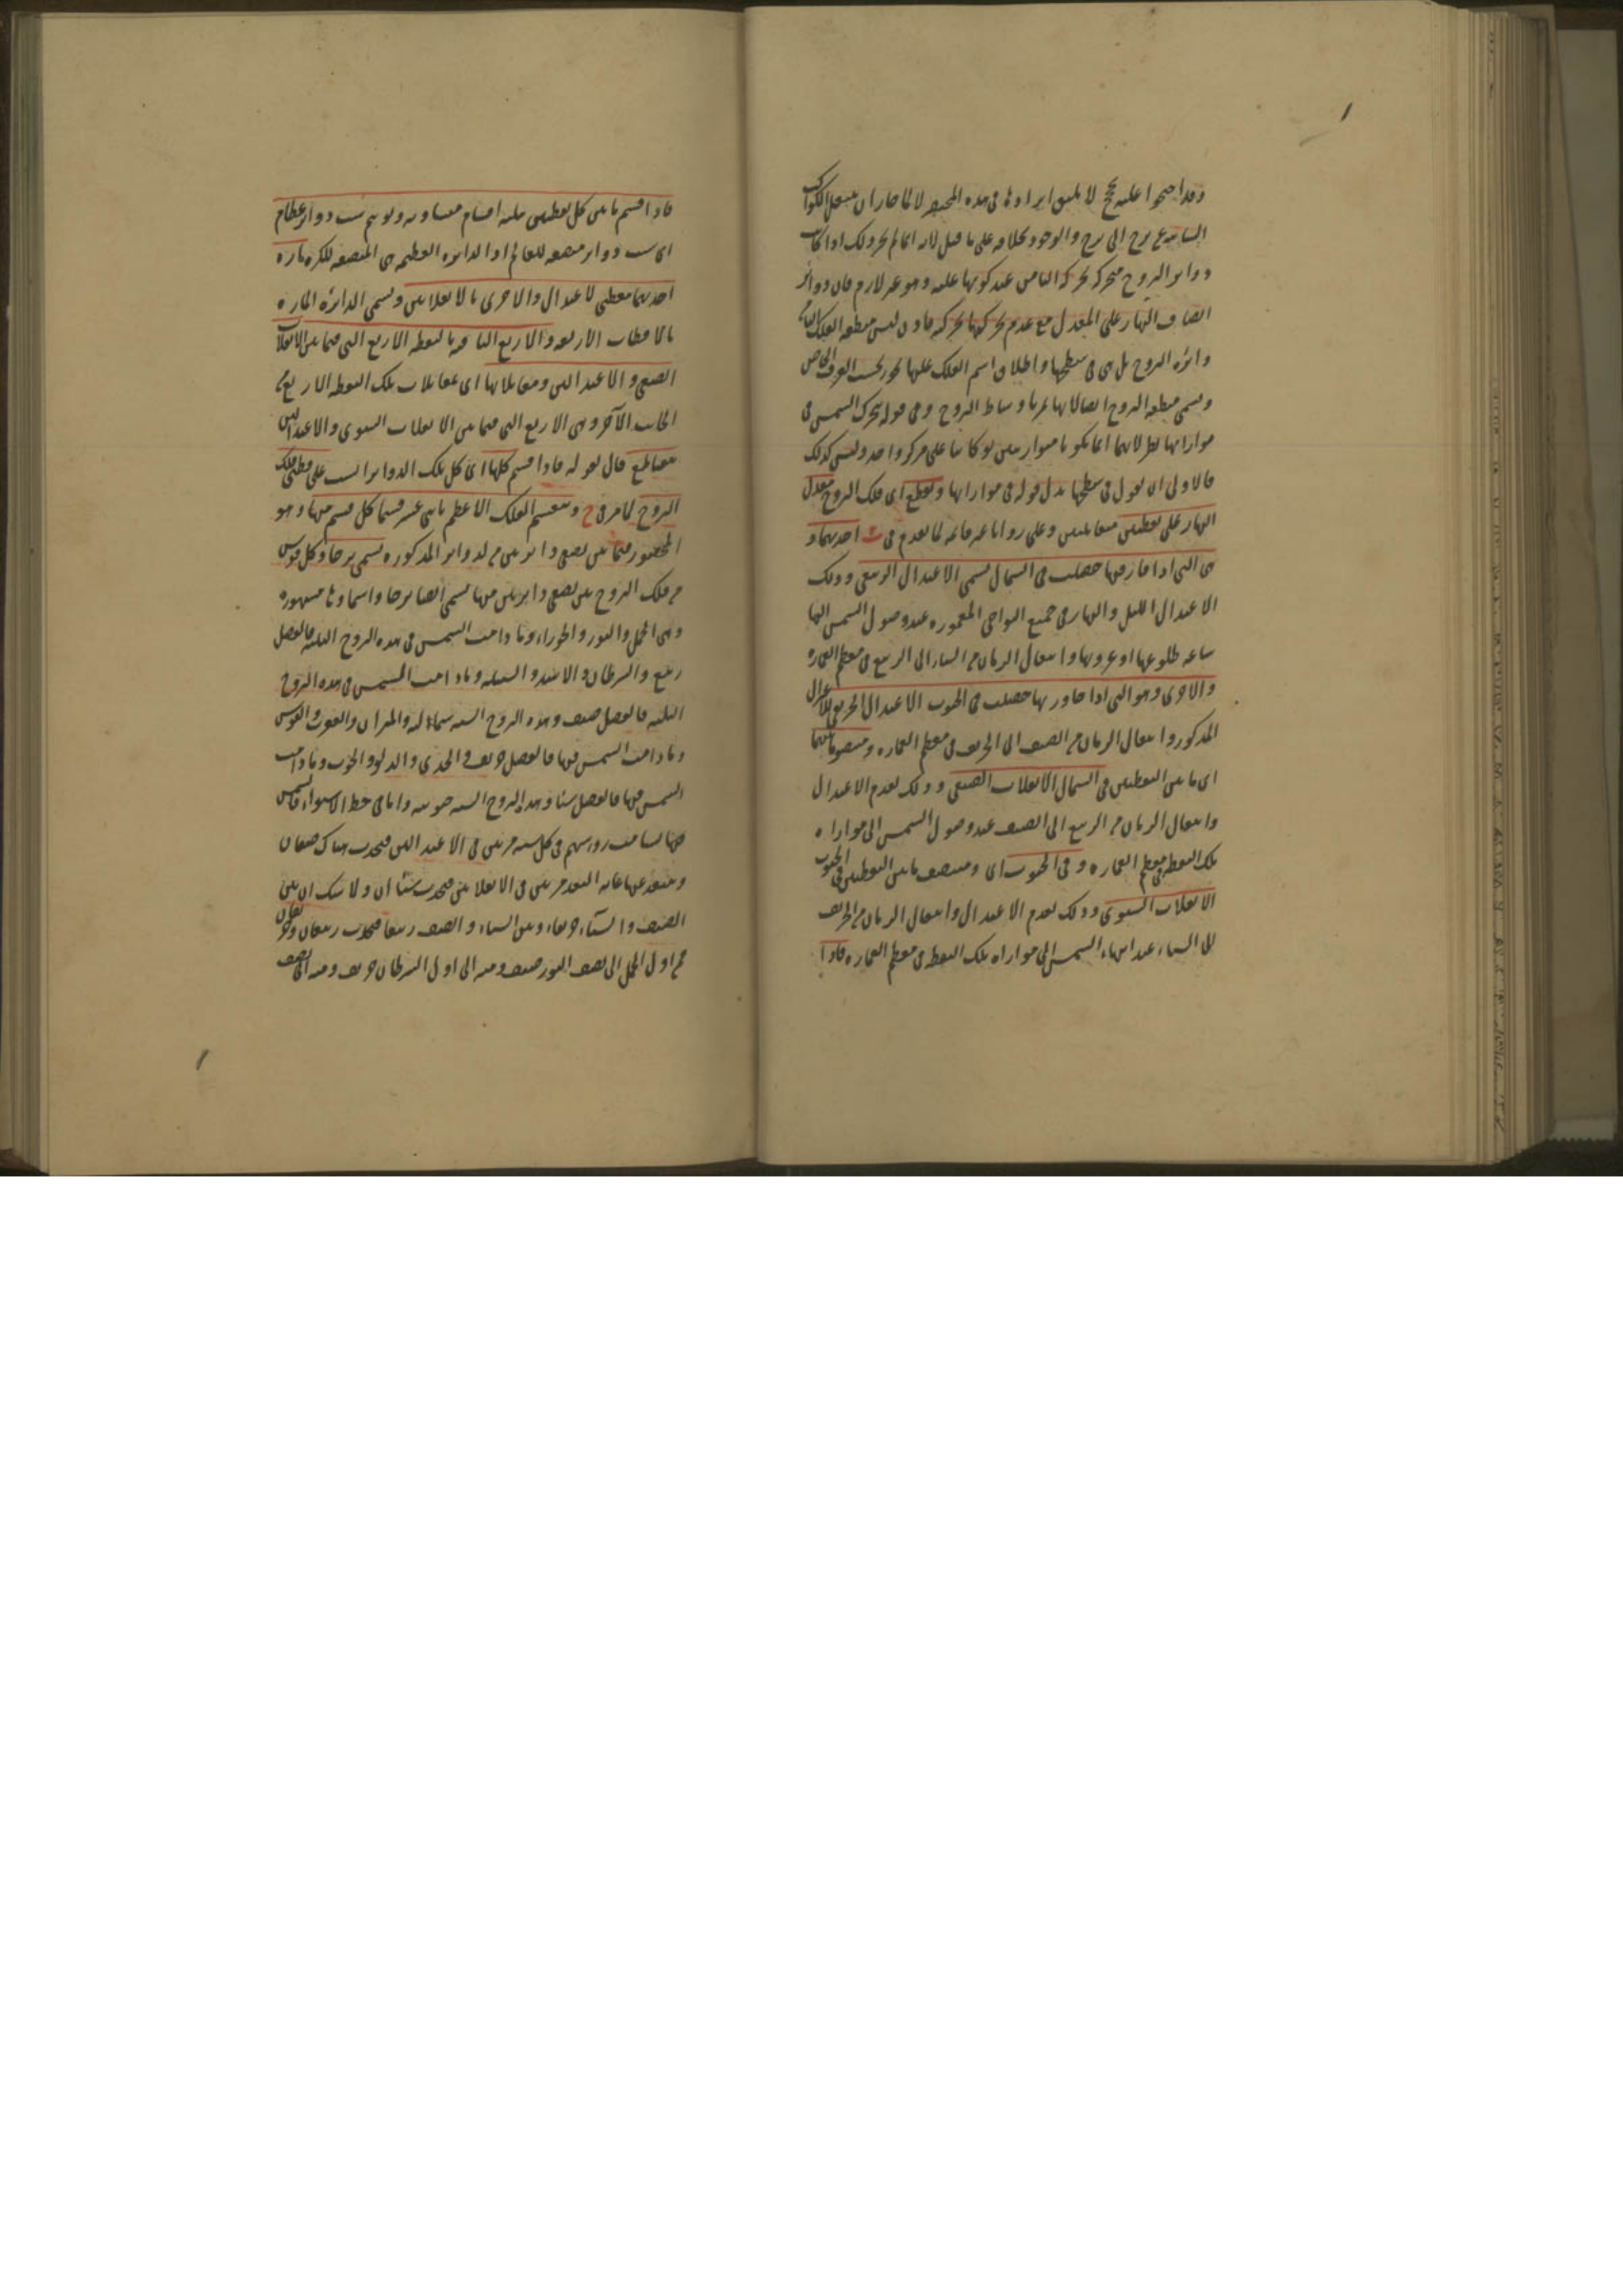 وقد احتجوا عليه بحجج لا يليق ايرادها في هذه المختصر لا لما صار ان ينتقل الكواكب
الثابتة عن برج الى برج والوجود بخلافه على ما قيل لانه انما لم يجز ذلك اذا كانت
دوائر البروج متحركة بحركة الثامن عند كونها عليه وهو غير لازم فان دوائر
انصاف النهار على المعدل مع عدم تحركها بحركته فاذن ليس منطقة الفلك الثامن
دائرة البروج بل هي في سطحها واطلاق اسم الفلك عليها تجوز بحسب العرف الخاص
وتسمى منطقة البروج ايضا لانها تمر باوساط البروج وفي قوله تتحرك الشمس في
موازاتها نظر لانهما انما يكونا متوازيتين لو كانتا على مركز واحد وليس كذلك
فالاولى ان يقول في سطحها بدل قوله في موازاتها ويقطع اي فلك البروج معدل
النهار على نقطتين متقابلتين وعلى زوايا غير قائمة لما تقدم في احديهما و
هي التي اذا فارقتها حصلت في الشمال تسمى الاعتدال الربيعي وذلك
الاعتدال الليل والنهار في جميع النواحي المعمورة عند وصول الشمس اليها
ساعة طلوعها او غروبها وانتقال الزمان من الشتاء الى الربيع في معظم العمارة
والاخرى وهو التي اذا جاورتها حصلت في الجنوب الاعتدال الخريفي للاعتدال
المذكور وانتقال الزمان من الصيف الى الخريف في معظم العمارة ومنتصف ما بينهما
اي ما بين النقطتين في الشمال الانقلاب الصيفي وذلك لعدم الاعتدال
وانتقال الزمان من الربيع الى الصيف عند وصول الشمس الى موازاة
تلك النقطة في معظم العمارة وفي الجنوب اي ومنتصف ما بين النقطتين في الجنوب
الانقلاب الشتوي وذلك لعدم الاعتدال وانتقال الزمان من الخريف
الى الشتاء عند انتهاء الشمس الى موازاة تلك النقطة في معظم العمارة فاذا
فاذا قسم ما بين كل نقطتين ثلثة اقسام متساوية وتوهم ست دوائر عظام
اي ست دوائر منصفة للعالم اذ الدائرة العظيمة هي المنصفة للكرة مارة
احديهما بنقطتي الاعتدال والاخرى بالانقلابين وتسمى الدائرة المارة
بالاقطاب الاربعة والاربع الباقية بالنقط الاربع التي فيما بين الانقلاب
الصيفي والاعتدالين ومقابلاتها اي مقابلات تلك النقط الاربع من
الجانب الآخر وهي الاربع التي فيما بين الانقلاب الشتوي والاعتدالين
تتقاطع قال لقوله فاذا قسم كلها اي كل تلك الدوائر الست على قطبي فلك
البروج لما مر في ح وينقسم الفلك الاعظم باثني عشر قسما كل قسم منها وهو
المحصور فيما بين نصفي دائرتين من الدوائر المذكورة تسمى برجا وكل قوس
من فلك البروج بين نصفي دائرتين منها تسمى ايضا برجا واسماؤها مشهورة
وهي الحمل والثور والجوزاء وما دامت الشمس في هذه البروج الثلثة فالفصل
ربيع والسرطان والاسد والسنبلة وما دامت الشمس في هذه البروج
الثلثة فالفصل صيف وهذه البروج الستة شمالية والميزان والعقرب والقوس
وما دامت الشمس فيها فالفصل خريف والجدي والدلو والحوت وما دامت
الشمس فيها فالفصل شتاء وهذه البروج الستة جنوبية واما في خط الاستواء فالشمس
فيها تسامت رؤسهم في كل سنة مرتين في الاعتدالين فيحدث هناك صيفان
وتبعد عنها غاية البعد مرتين في الانقلابين فيحدث شتاآن ولا شك ان بين
الصيف والشتاء خريفا وبين الشتاء والصيف ربيعا فيحدث ربيعان وخريفان
فمن اول الحمل الى نصف الثور صيف ومنه الى اول السرطان خريف ومنه الى نصف